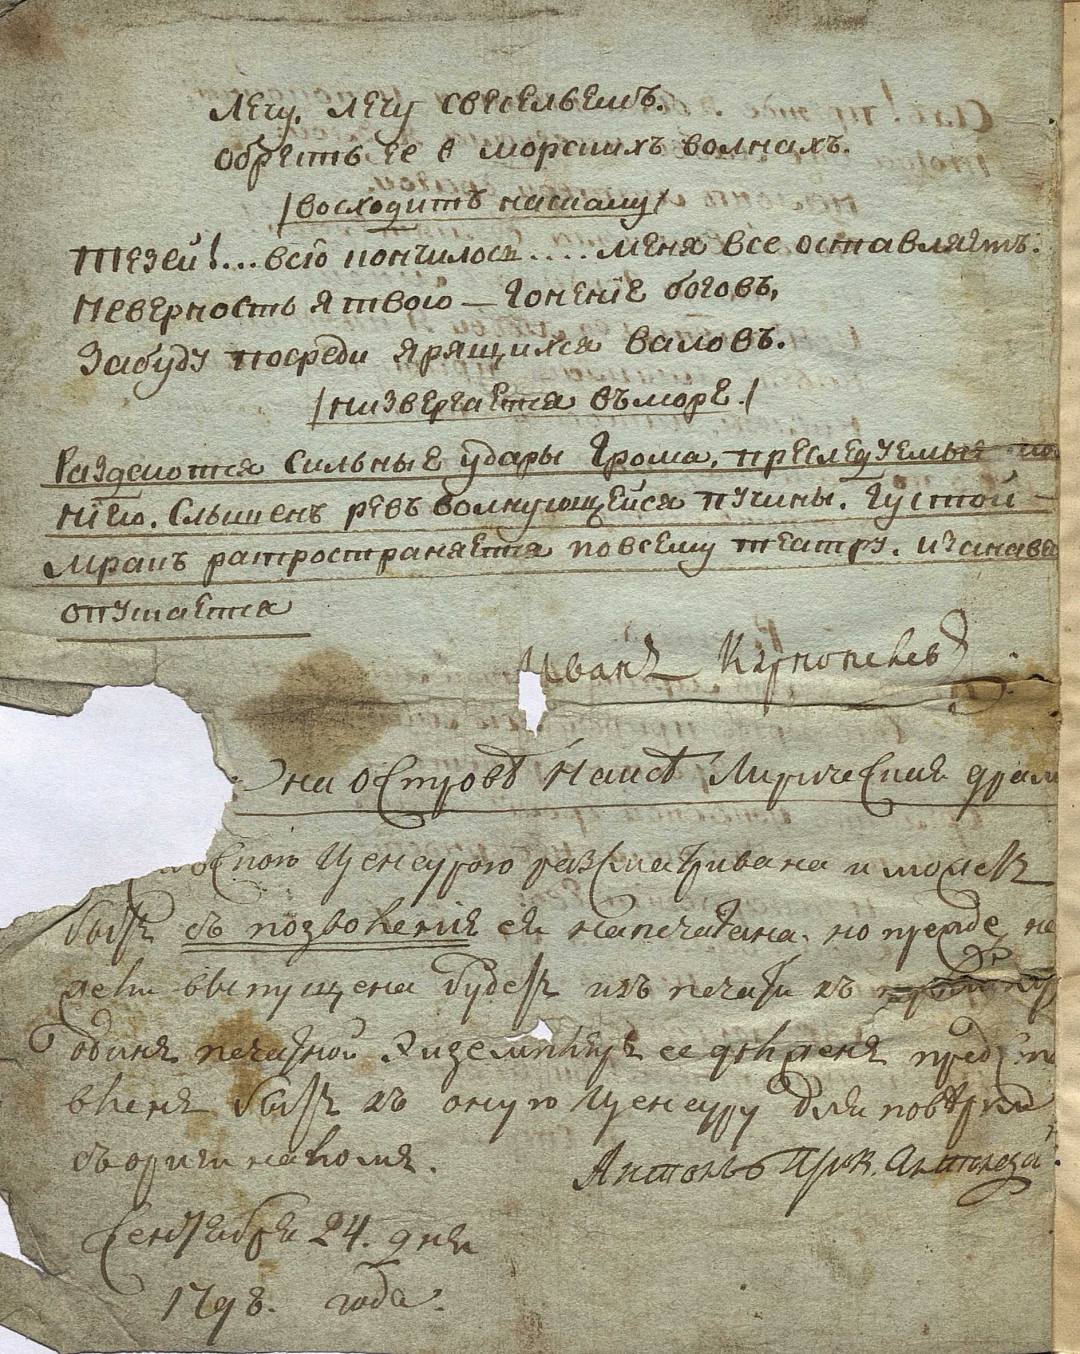 Лечу, лечу свесельемъ.
обретьь ее в морскихъ волнахъ.
/восходитъ наскалу/
Тезей!...всіо кончилось.... меня все оставляетъ.
Неверность я твою — гоненіе боговъ,
Забуду посреди ярящихся валовъ.
/низвергается въморе./
Раздаются сильные удары грома, преследуемые мо
ніею. Слышенъ ревъ волнующейся пучины. Густой
мракъ ратространяется повсему театру. изанавес
опускается
Иванъ
на островѣ Наксѣ Лирическая драм
Ценсурою разсматривана и можетъ
быть съ позволенія ея напечатана. но прежде не
жели выпущена будетъ изъ печати въ
одинъ печатной Экземпляръ ее долженъ предста
вленъ быть въ оную Ценсуру для повѣрки
съ оригиналомъ.
Антонъ
Сентября 24. дня
1798. года.